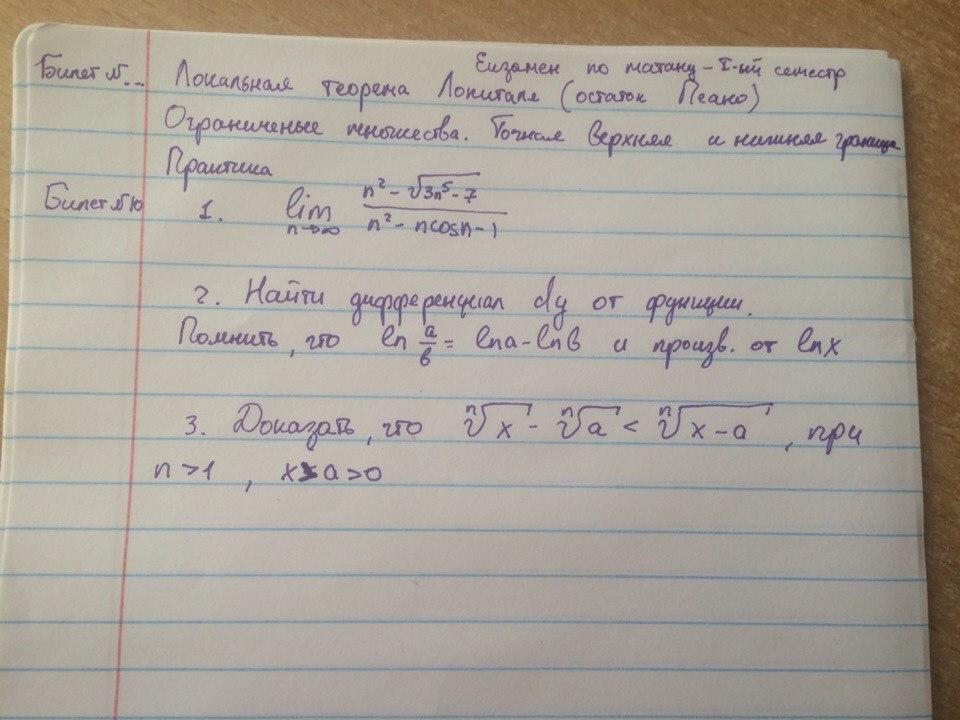 Экзамен по матану - I-ый семестр
Билет №.. Локальная теорема Лопиталя (остаток Пеано)
Ограниченые множества. Точная верхняя и нижняя граница
Практика
Билет №10 1. lim n→∞ (n² - √(3n⁵ - 7)) / (n² - n cos n - 1)
2. Найти дифференциал dy от функции.
Помнить, что ln a/b = ln a - ln b и произв. от ln x
3. Доказать, что ⁿ√x - ⁿ√a < ⁿ√(x-a), при
n > 1, x > a > 0